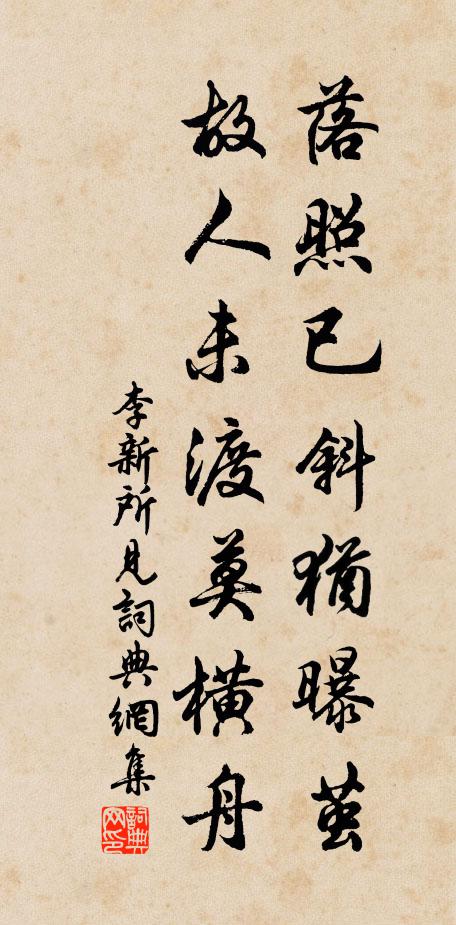 落照已斜猶曝茧
故人未渡莫橫舟
李新所見詞典網集
詞典网印